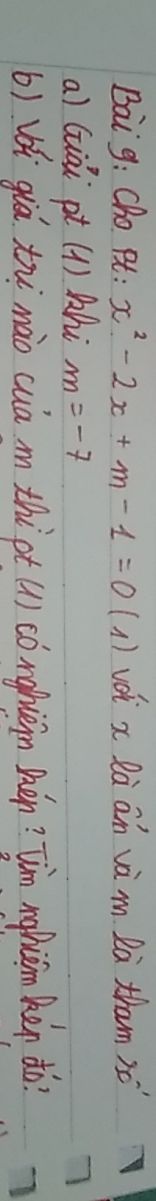 Bài 9: Cho pt: x² - 2x + m - 1 = 0 (1) với x là ẩn và m là tham số
a) Giải pt (1) khi m = -7
b) Với giá trị nào của m thì pt (1) có nghiệm kép? Tìm nghiệm kép đó?